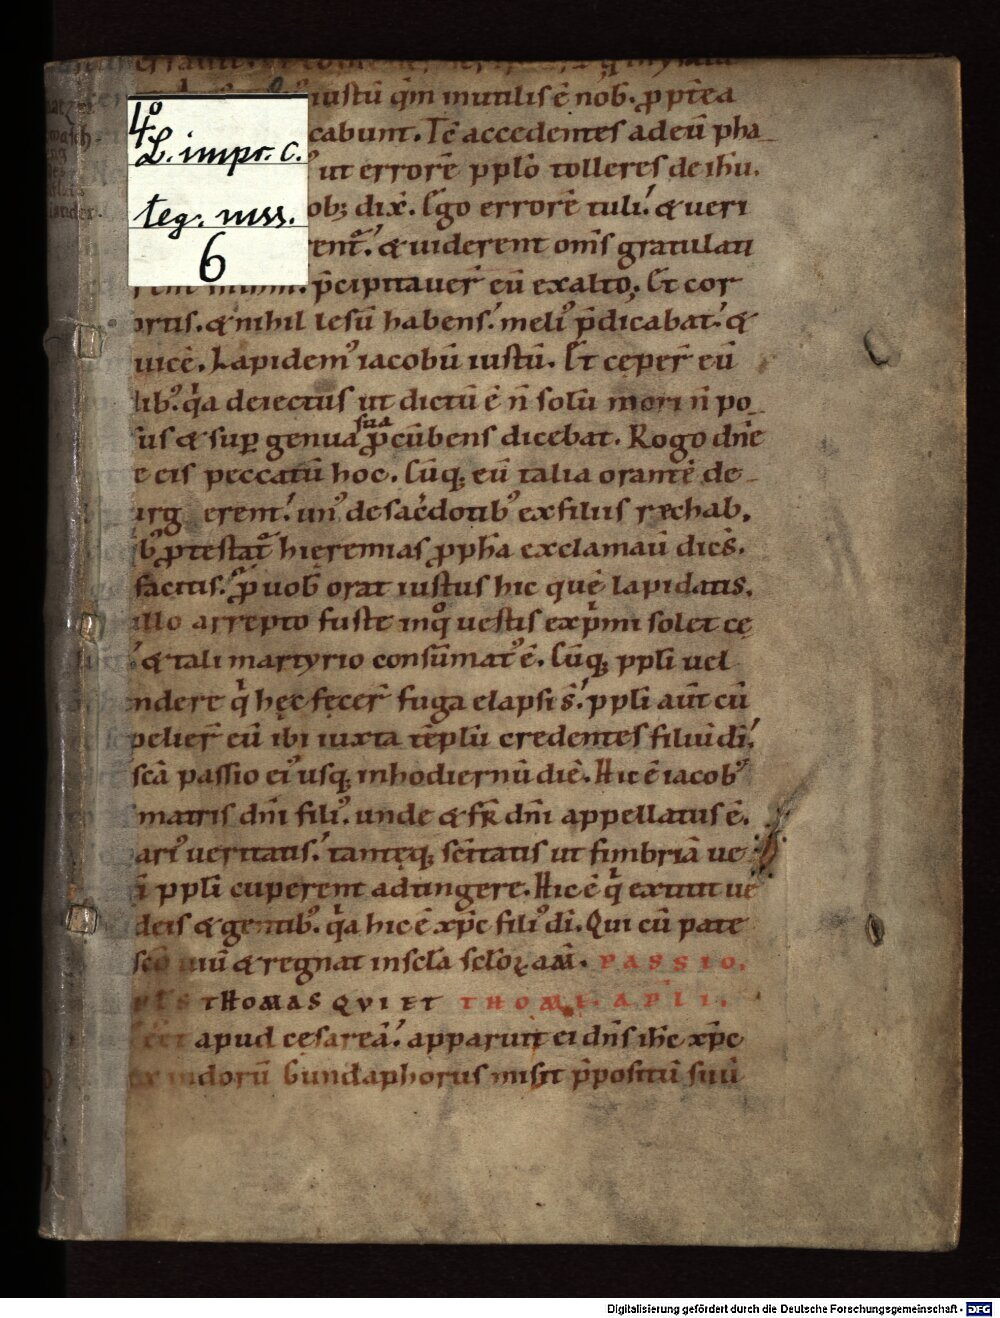 iustū q̄m inutilis ē nob. ꝓpt̄ea
4° L. impr. c.
cabunt. Tē accedentes ad eū pha
ut errorē pplō tolleres de ih̄u.
teg. mss.
dix̄. Ergo errorē tuli. & ueri
6
& uiderent om̄s gratulati
p̄cipitauer̄ eū ex alto. Et cor
& nihil lesū habens. meliꝰ p̄dicabat. &
Lapidemꝰ iacobū iustū. Et ceper̄ eū
deiectus ut dictū ē n̄ solū mori n̄ po
us & suꝑ genua sua ꝓcūbens dicebat. Rogo dn̄e
eis peccatū hoc. Cūq; eū talia orantē de
erent. unꝰ de sac̄dotibꝰ ex filiis rechab.
ꝓtestat̄ hieremias ꝓph̄a exclamauit dicēs.
facitis. ꝓ uob orat iustus hic quē lapidatis.
illo arrepto fuste in quo uestis exprimi solet ce
& tali martyrio consūmatꝰ ē. Cūq; ppl̄i uel
ndere q̄ hęc fecer̄ fuga elapsi s̄. ppl̄i aūt cū
pelier̄ eū ibi iuxta tēplū credentes filiū dī.
sc̄a passio eiꝰ usq; in hodiernū diē. Hic ē iacobꝰ
matris dn̄i filiꝰ. unde & fr̄ dn̄i appellatus ē.
ueritatis. tantęq; sc̄itatis ut fimbriā ue
ppl̄i cuperent adtingere. Hic ē qui extitit ue
deis & gentibꝰ. quia hic ē xp̄c filiꝰ dī. Qui cū patre
& regnat in sc̄la sc̄loꝝ am̄. PASSIO.
THOMAS QVI ET THOME. APLI.
apud cesareā. apparuit ei dn̄s ih̄c xp̄c
indorū Gundaphorus misit p̄positū suū
Digitalisierung gefördert durch die Deutsche Forschungsgemeinschaft - DFG